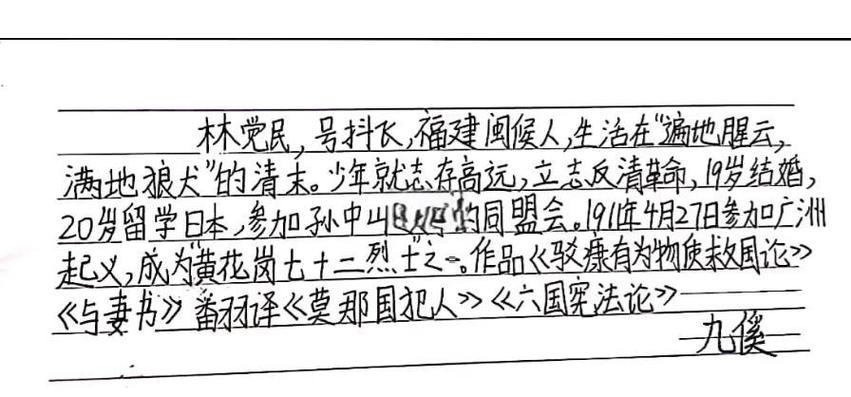 林觉民，号抖飞，福建闽候人，生活在"遍地腥云，
满地狼犬"的清末。少年就志存高远，立志反清革命，19岁结婚，
20岁留学日本，参加孙中山的同盟会。1911年4月27日参加广洲
起义，成为"黄花岗七十二烈士"之一。作品《驳康有为物质救国论》
《与妻书》翻译《莫那国犯人》《六国宪法论》
九傒